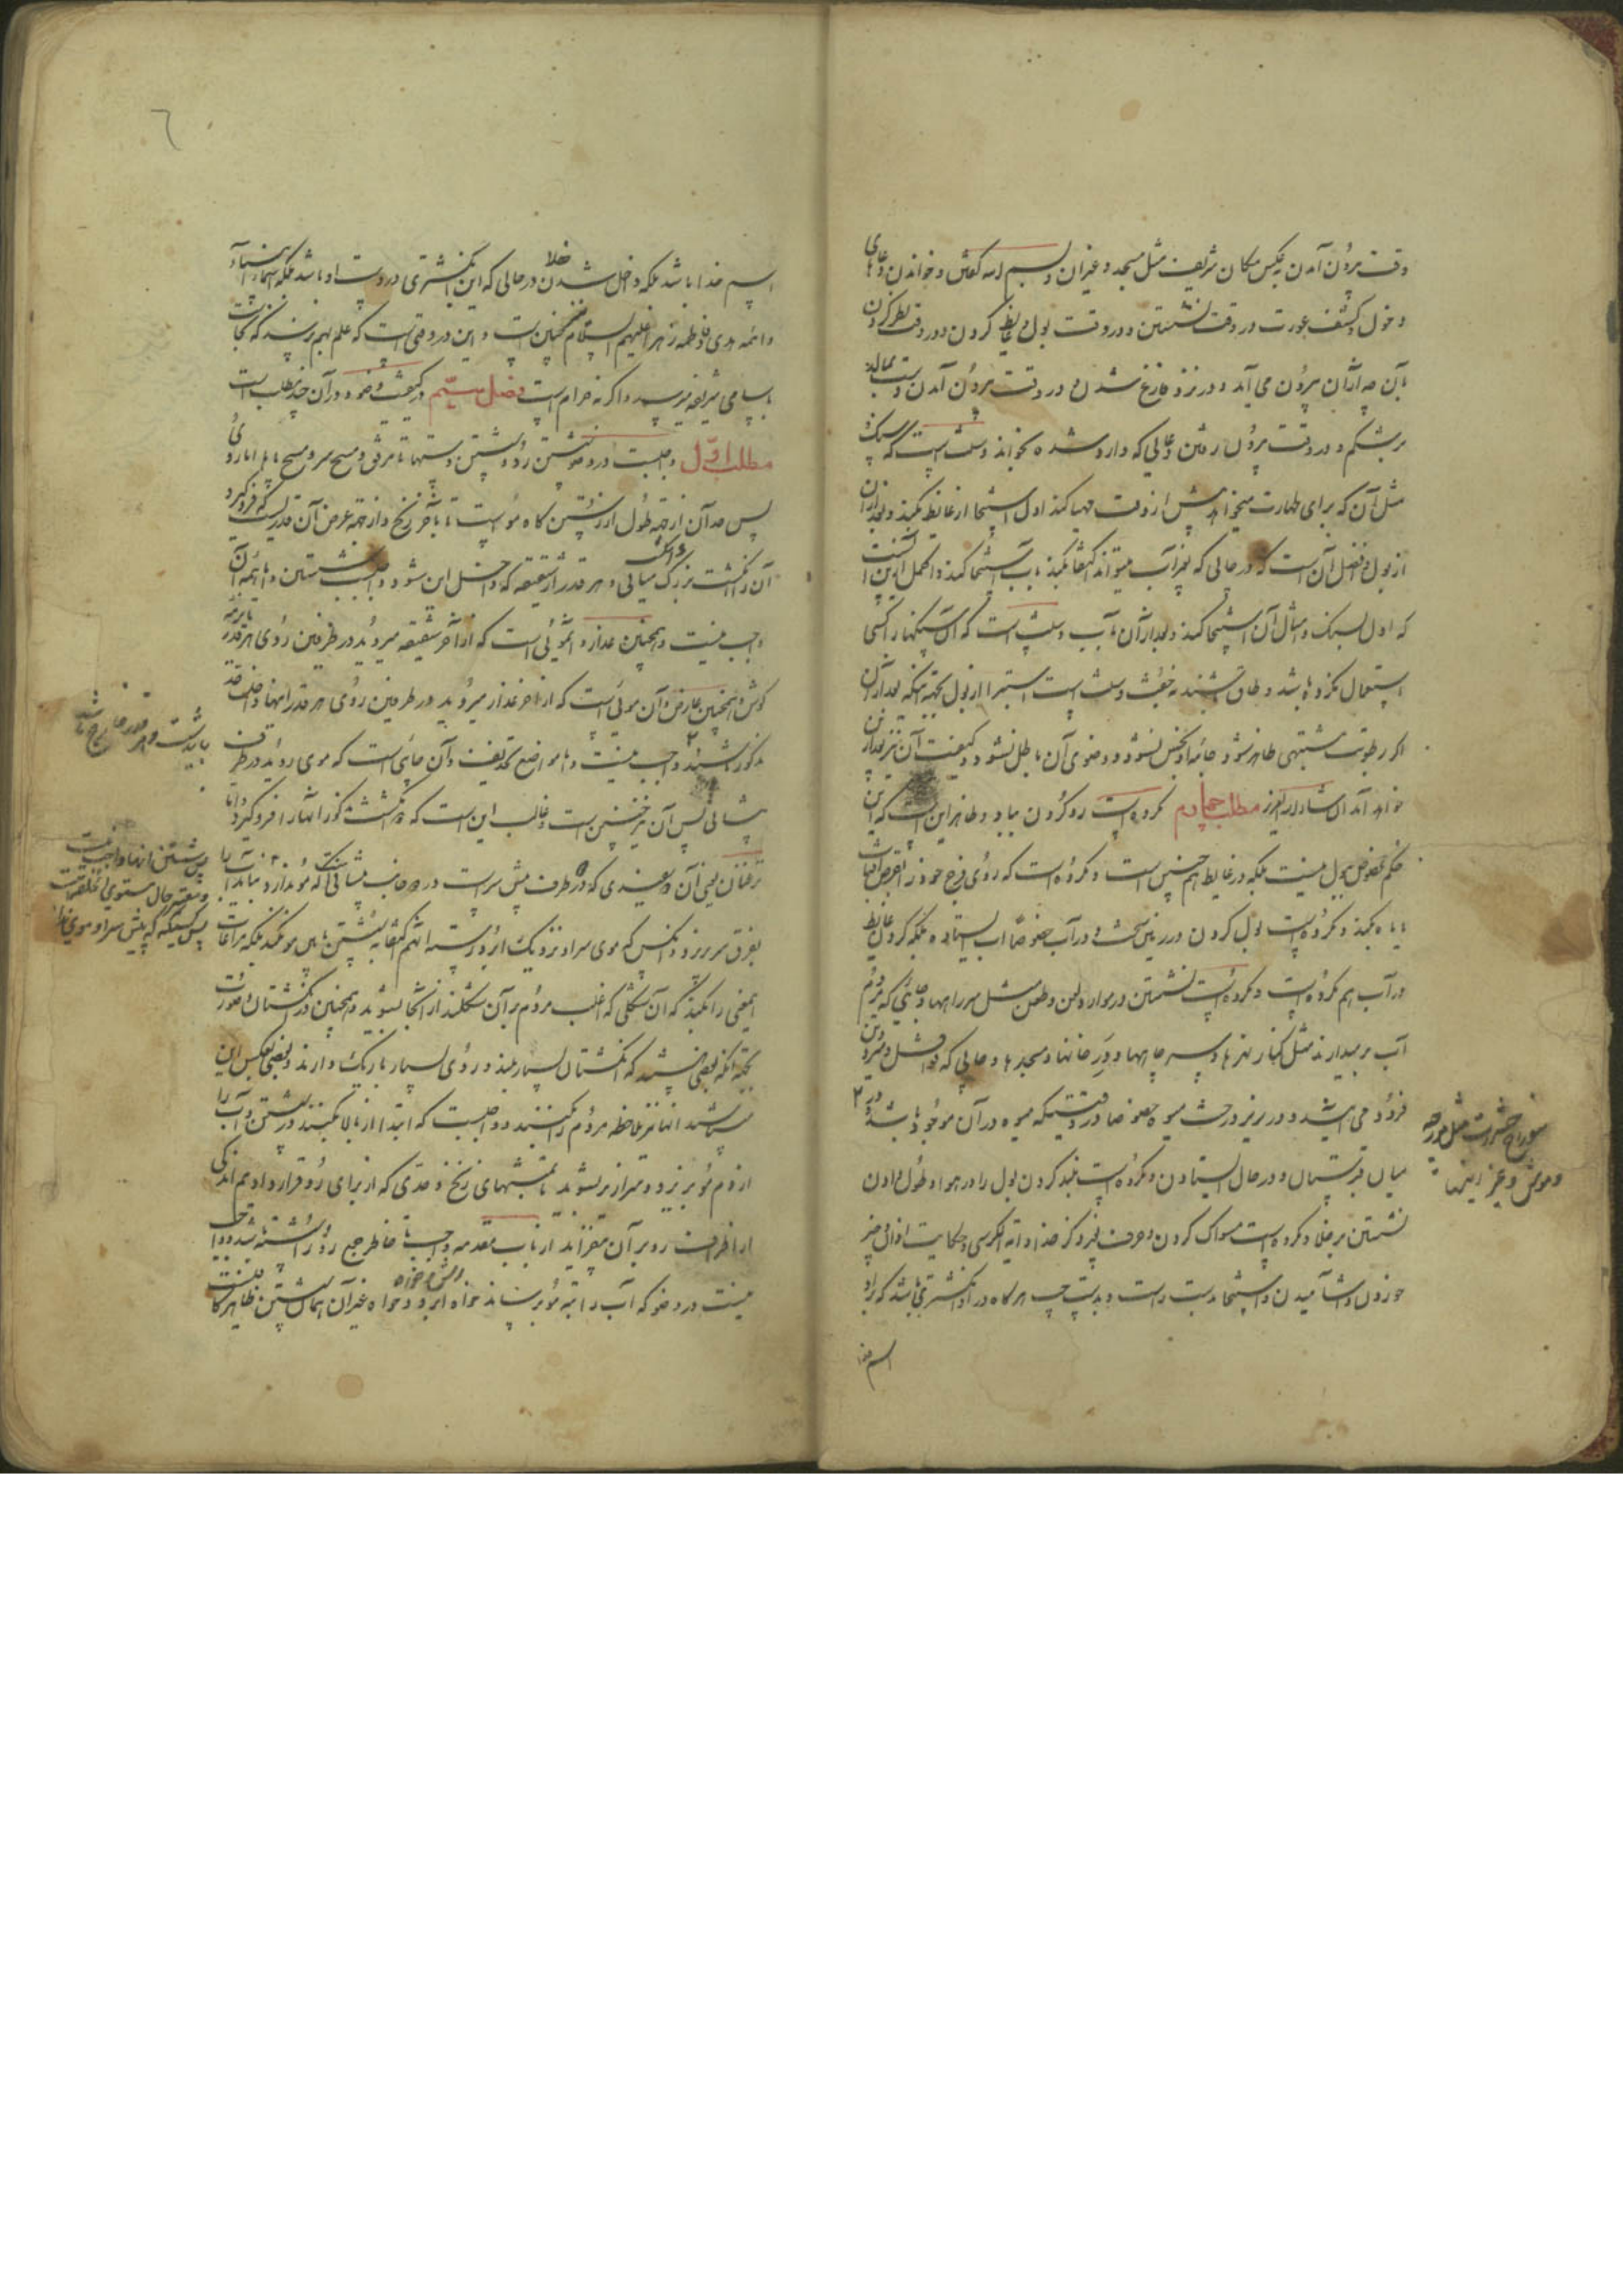 وقت بیرون آمدن بعکس مکان شریف مثل مسجد و غیر آن و بسم الله گفتن و خواندن دعای
دخول و کشف عورت در وقت نشستن و در وقت بول و غایط کردن و در وقت نظر کردن
بآن چه از آن بیرون می آید و در نزد فارغ شدن و در وقت بیرون آمدن و دست بمالد
بر شکم و در وقت بیرون رفتن دعائی که وارد شده بخواند و سنت است که سنک
مثل آن که برای طهارت میخواهد پیش از وقت مهیا کند اول استنجا از غایط بکند و بعد از آن
از بول و افضل آن است که در حالی که بغیر آب میتواند اکتفا بکند بآب استنجا کند و اکمل از این آنست
که اول بسنک و امثال آن استنجا کند و بعد از آن بآب و سنت است که آن سنکها را کسی
استعمال نکرده باشد و طاق باشند نه جفت و سنت است استبرا از بول بجهة آنکه بعد از آن
اکر رطوبت مشتبهی ظاهر شود جامه او نجس نشود و وضوی آن باطل نشود و کیفیت آن نیز بعد از این
خواهد آمد ان شاء الله العزیز مطلب چهارم مکروه است رو کردن بباد و ظاهر این است که این
حکم مخصوص ببول نیست بلکه در غایط هم چنین است و مکروه است که روی فرج خود را بقرص آفتاب
یا ماه بکند و مکروه است بول کردن در زمین سخت و در آب خصوصا آب ایستاده بلکه کردن غایط
در آب هم مکروه است و مکروه است نشستن در موارد لعن و طعن مثل سر راهها و جائی که مردم
آب بر میدارند مثل کنار نهرها و سر چاهها و در خانها و مسجدها و جائی که قوافل و مترددین
فرود می آیند و در زیر درخت میوه خصوصا در وقتیکه میوه در آن موجود باشد و در
میان قبرستان و در حال ایستادن و مکروه است بلند کردن بول را در هوا و طول دادن
نشستن بر خلا و مکروه است مسواک کردن و حرف بغیر ذکر خدا و آیة الکرسی و حکایت اذان و چیز
خوردن و آشامیدن و استنجا بدست راست و بدست چپ هر کاه در او انکشتری باشد که بر او
اسم خدا
سوراخ حشرات مثل مورچه
و موش و غیر اینها
٦
اسم خدا باشد بلکه داخل شدن خلا در حالی که این انکشتری در دست او باشد بلکه اسماء انبیاء
و ائمه هدی و فاطمه زهرا علیهم السلام نیز همچنین است و این در وقتی است که علم بهم نرساند که نجاست
باسامی شریفه میرسد و اکر نه حرام است فصل سیم در کیفیت وضو و در آن چند مطلب است
مطلب اول واجبست در وضو شستن رو و شستن دستها تا مرفق و مسح سر و مسح پاها اما روی
پس حد آن از جهة طول از رستن کاه مو است تا بآخر زنخ و از جهة عرض آن قدریست که فرو کیرد
آن را انکشت بزرک و انکشت میانی و هر قدر از شقیقه که داخل این شود واجبست شستن و اما همه آن
واجب نیست و همچنین عذار و آن موئی است که از آخر شقیقه میروید در طرفین روی هر قدر برابر نرمه
کوش و همچنین عارض و آن موئی است که از آخر عذار میروید در طرفین روی هر قدر اینها داخل حد
مذکور باشند واجب نیست و اما مواضع تحذیف و آن جائی است که موی روید در طرف
پیشانی پس آن نیز چنین است و غالب این است که انکشت مذکور اینها را فرو کیرد و اما
نزعتان یعنی آن دو سفیدی که در دو طرف پیش سر است در دو جانب پیشانی که مو ندارد نباید آب را
بفرق سر ریزد و آنکس که موی سر او نزدیک ابرو رسته آنهم اکتفا بشستن پایین مو نکند بلکه مراعات
همین را بکند که آن شکلی که اغلب مردم بر آن شکلند از آنجا بشوید و همچنین در انکشتان و صورت
بجهة آنکه بعضی باشند که انکشتان بسیار بلند و روی بسیار باریک دارند و بعضی بعکس این
میباشند آنها نیز ملاحظه مردم را کنند و واجبست که ابتدا از بالا کنند در شستن و آب را
از دم مو بریزد و سرازیر بشوید تا بمنتهای زنخ و حدی که از برای رو قرار دادیم اندکی
از اطراف رو بر آن بیفزاید از باب مقدمه واجب تا خاطر جمع رو را شسته باشد و واجب
نیست در وضو که آب را بته مو برساند خواه ریش و خواه ابرو و خواه غیر آن همان شستن ظاهر کافیست
باید شست و هر قدر خارج باشد
پس شستن اینها واجب نیست
و معتبر حال مستوی الخلقة است
پس کسیکه که پیش سر او موی ندارد